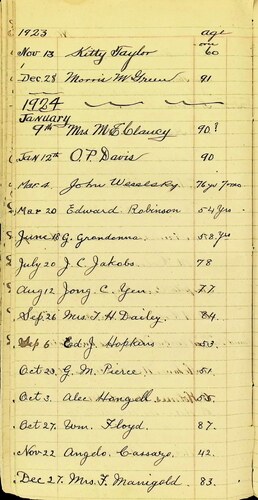 1923 age
Nov 13 Kitty Taylor 60
Dec 28 Morris M Green 91
1924
January
9th Mrs M E Clancy 90?
Jan 12th O. P. Davis 90
Mar 4 John Weselsky 76 yr 7 mo
Mar 20 Edward Robinson 54 Yrs
June G. Grandonna 58 Yrs
July 20 J. C. Jakobs 78
Aug 12 Jong. C. Yen 77
Sep 26 Mrs F H Dailey 84
Sep 6 Ed. J. Hopkins 53
Oct 23 G. M. Pierce 51
Oct 3 Alec 55
Oct 27. Wm. Floyd. 87.
Nov 22 Angelo Cassaza. 42.
Dec 27. Mrs. F. Marigold 83.